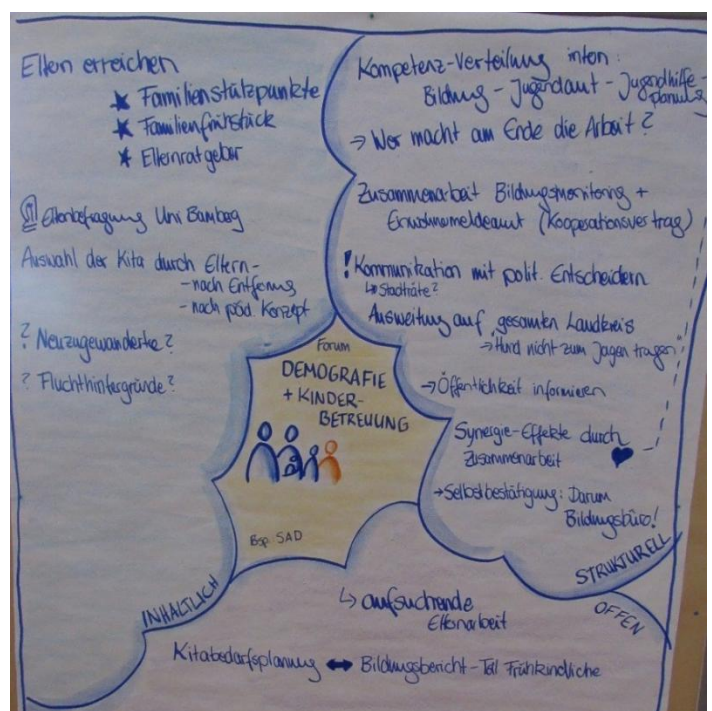 Eltern erreichen
★ Familienstützpunkte
★ Familienfrühstück
★ Elternratgeber
Elternbefragung Uni Bamberg
Auswahl der Kita durch Eltern -
- nach Entfernung
- nach päd. Konzept
? Neuzugewanderte?
? Fluchthintergründe?
INHALTLICH
Kompetenz-Verteilung intern:
Bildung - Jugendamt - Jugendhilfe-
planung
→ Wer macht am Ende die Arbeit?
Zusammenarbeit Bildungsmonitoring +
Einwohnermeldeamt (Kooperationsvertrag)
! Kommunikation mit polit. Entscheidern
↳ Stadträte?
Ausweitung auf gesamten Landkreis
→ Hund nicht zum Jagen tragen
→ Öffentlichkeit informieren
Synergie-Effekte durch
Zusammenarbeit ♥
→ Selbstbestätigung: Darum
Bildungsbüro!
STRUKTURELL
Forum
DEMOGRAFIE
+ KINDER-
BETREUUNG
Bsp. SAD
OFFEN
↳ aufsuchende
Elternarbeit
Kitabedarfsplanung ↔ Bildungsbericht - Teil Frühkindliche